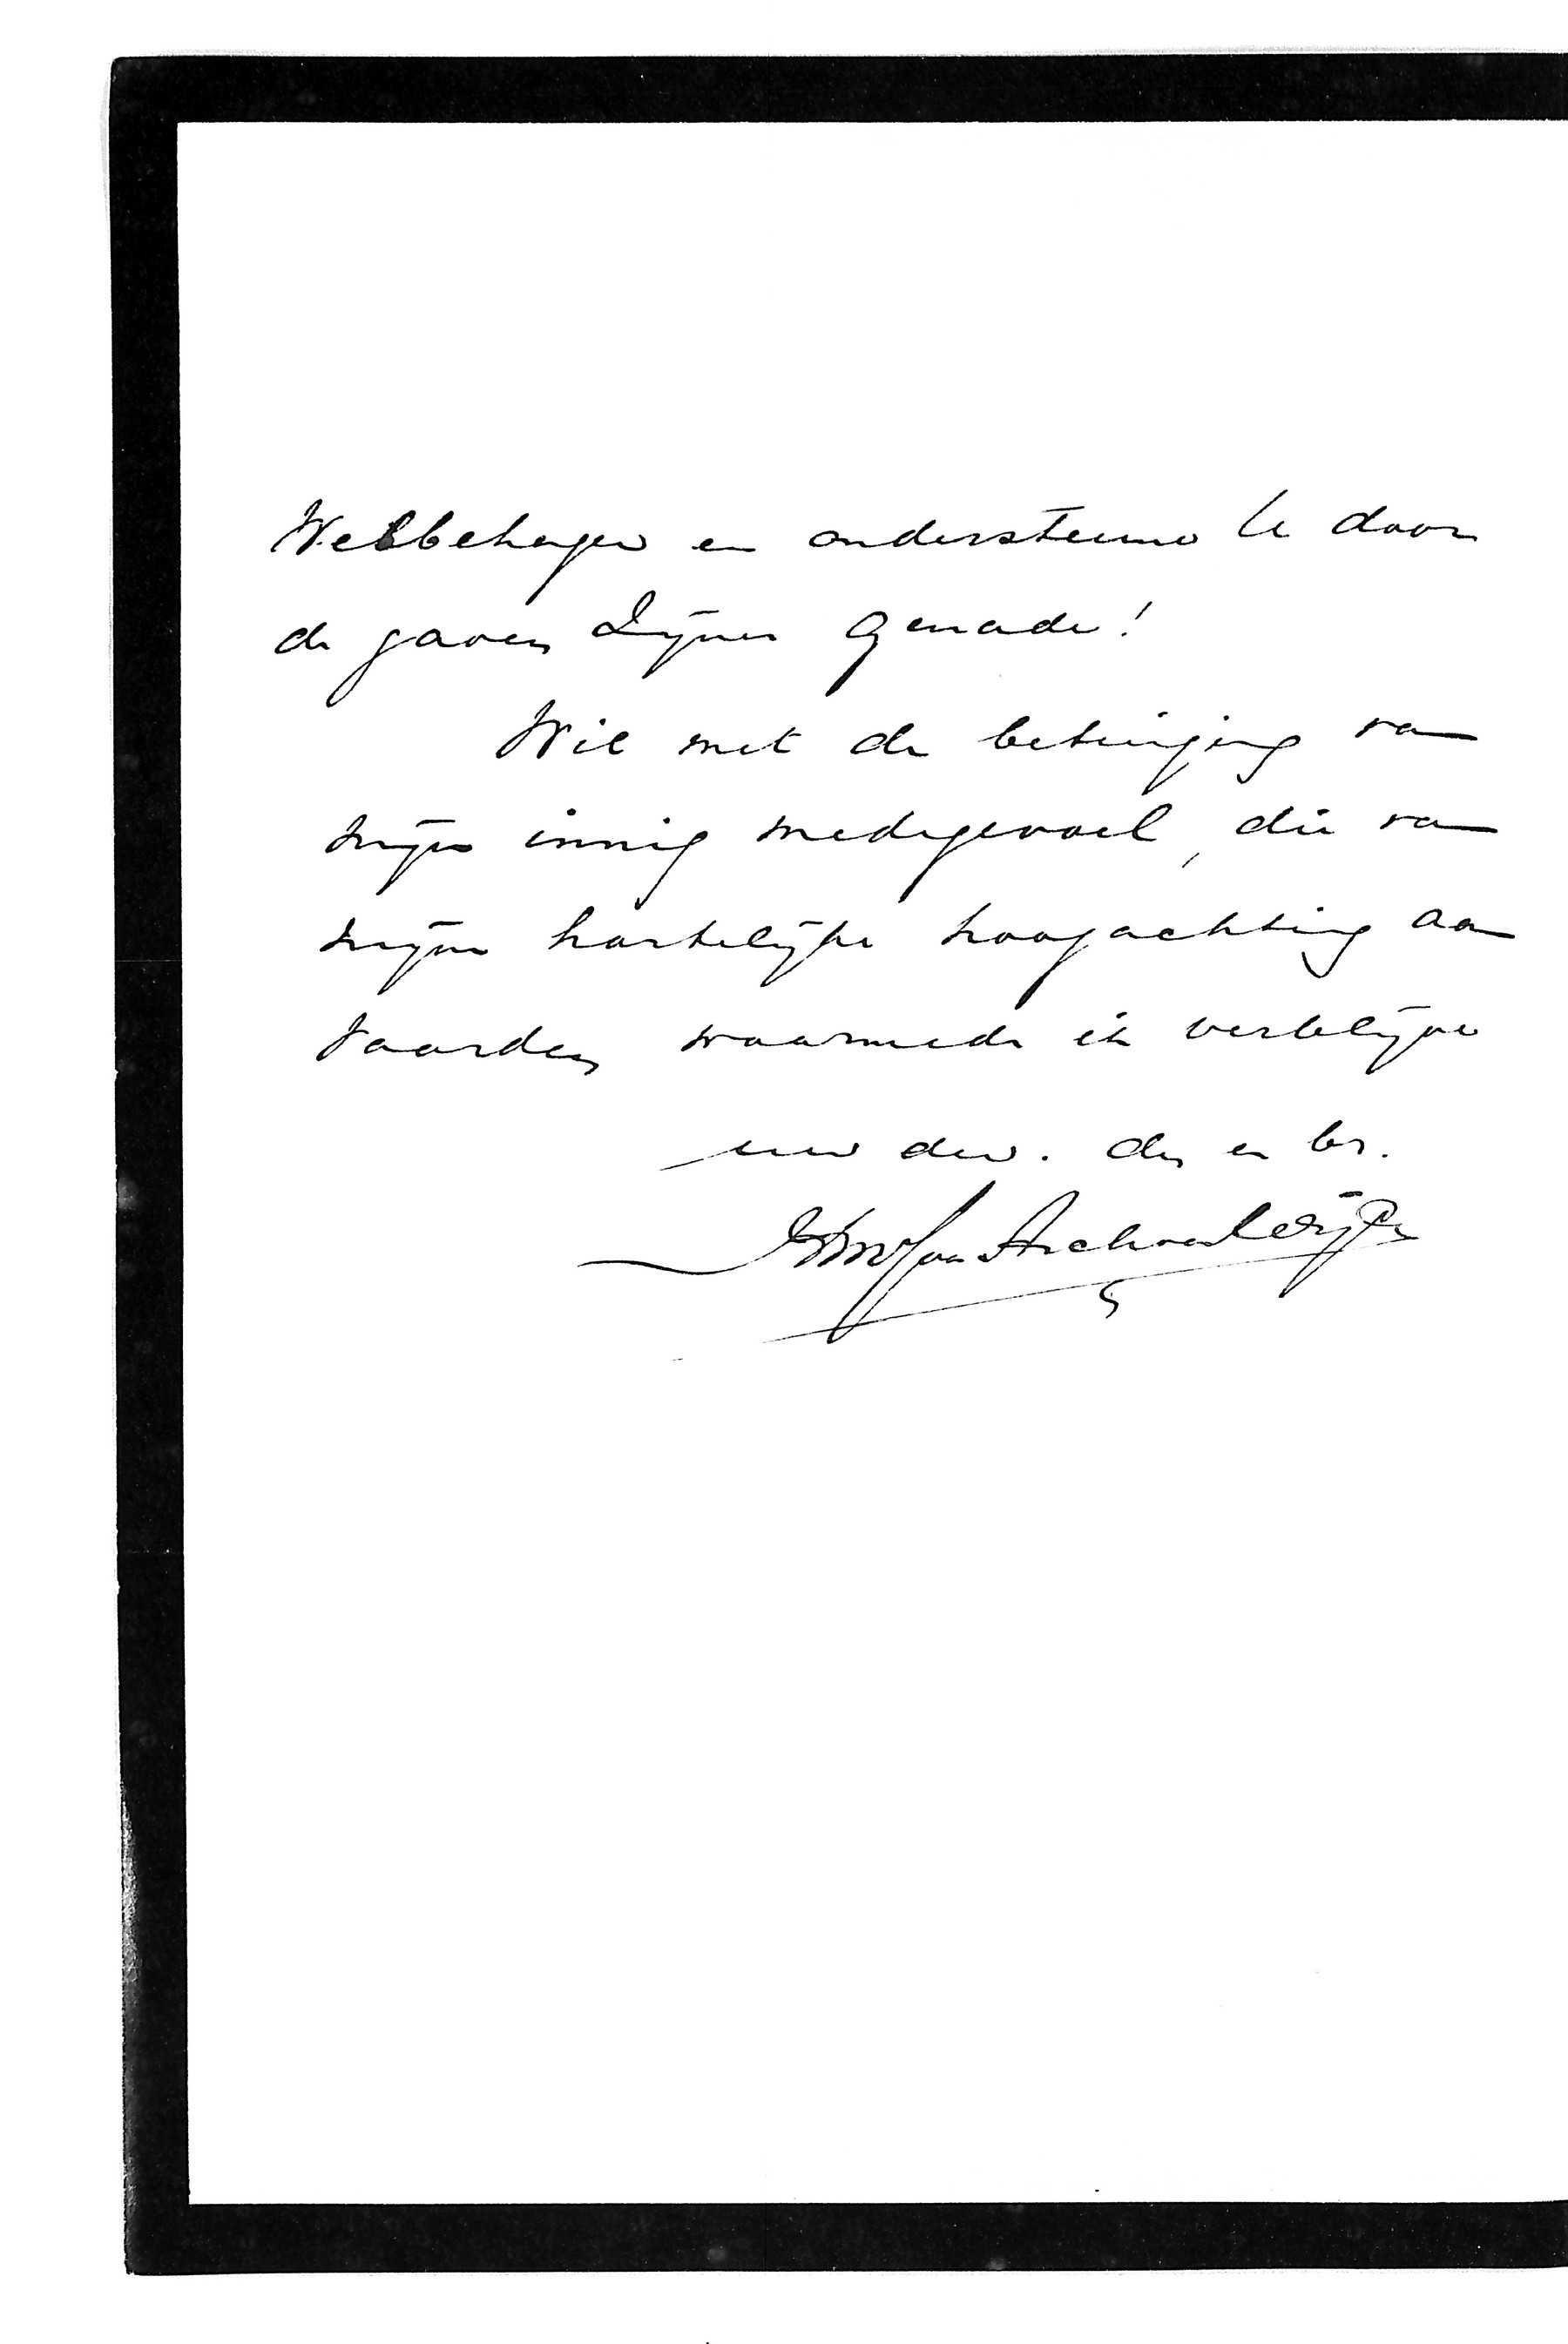 Welbehagen en ondersteune U door
de gaven Zijner Genade!
Wil met de betuiging van
mijn innig medegevoel, die van
mijne hartelijke hoogachting aan
vaarden waarmede ik verblijve
uw dw. dr en br.
van Archen